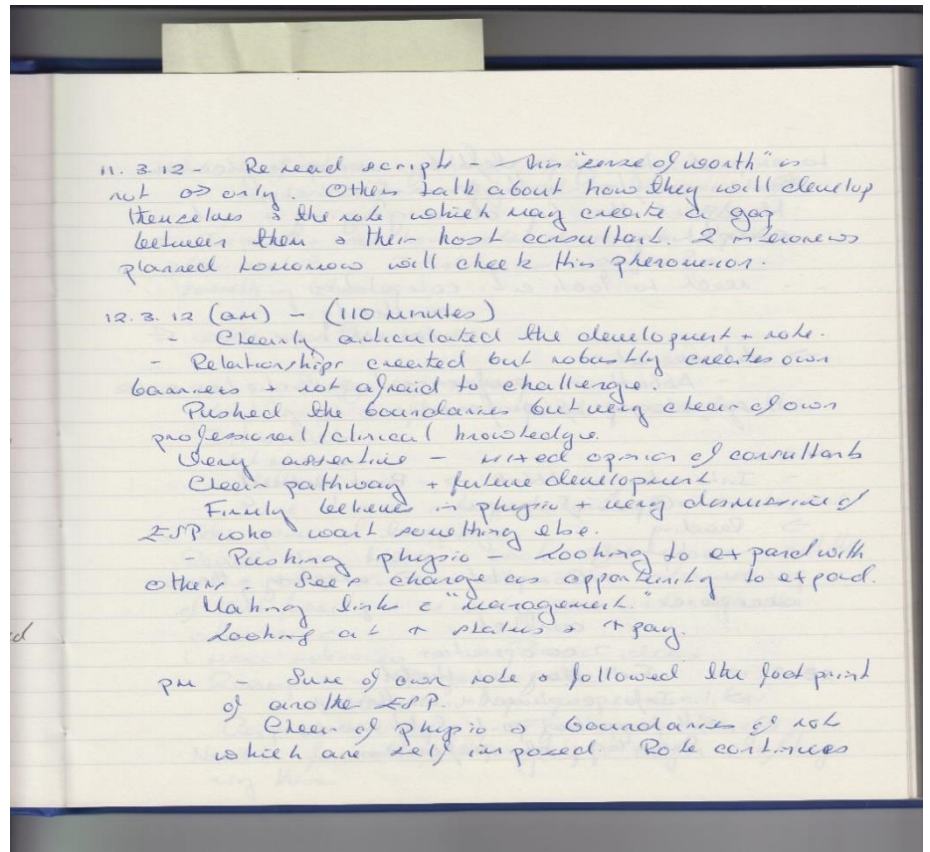 11.3.12 - Reread scripts - this "sense of worth" is
not only. Others talk about how they will develop
themselves & the role which may create a gap
between them & their host consultant. 2 interviews
planned tomorrow will check this phenomenon.
12.3.12 (am) - (110 minutes)
- Clearly articulated the development + role.
- Relationships created but robustly creates own
barriers + not afraid to challenge.
Pushed the boundaries but very clear of own
professional/clinical knowledge.
Very assertive - mixed opinion of consultants
Clear pathway + future development
Firmly believes in physio + very dismissive of
ESP who want something else.
- Pushing physio - Looking to expand with
others. Sees change as opportunity to expand.
Making links c "management."
Looking at ↑ status & ↑ pay.
pm - Sure of own role & followed the footprint
of another ESP.
Clear of physio & boundaries of role
which are self imposed. Role continues